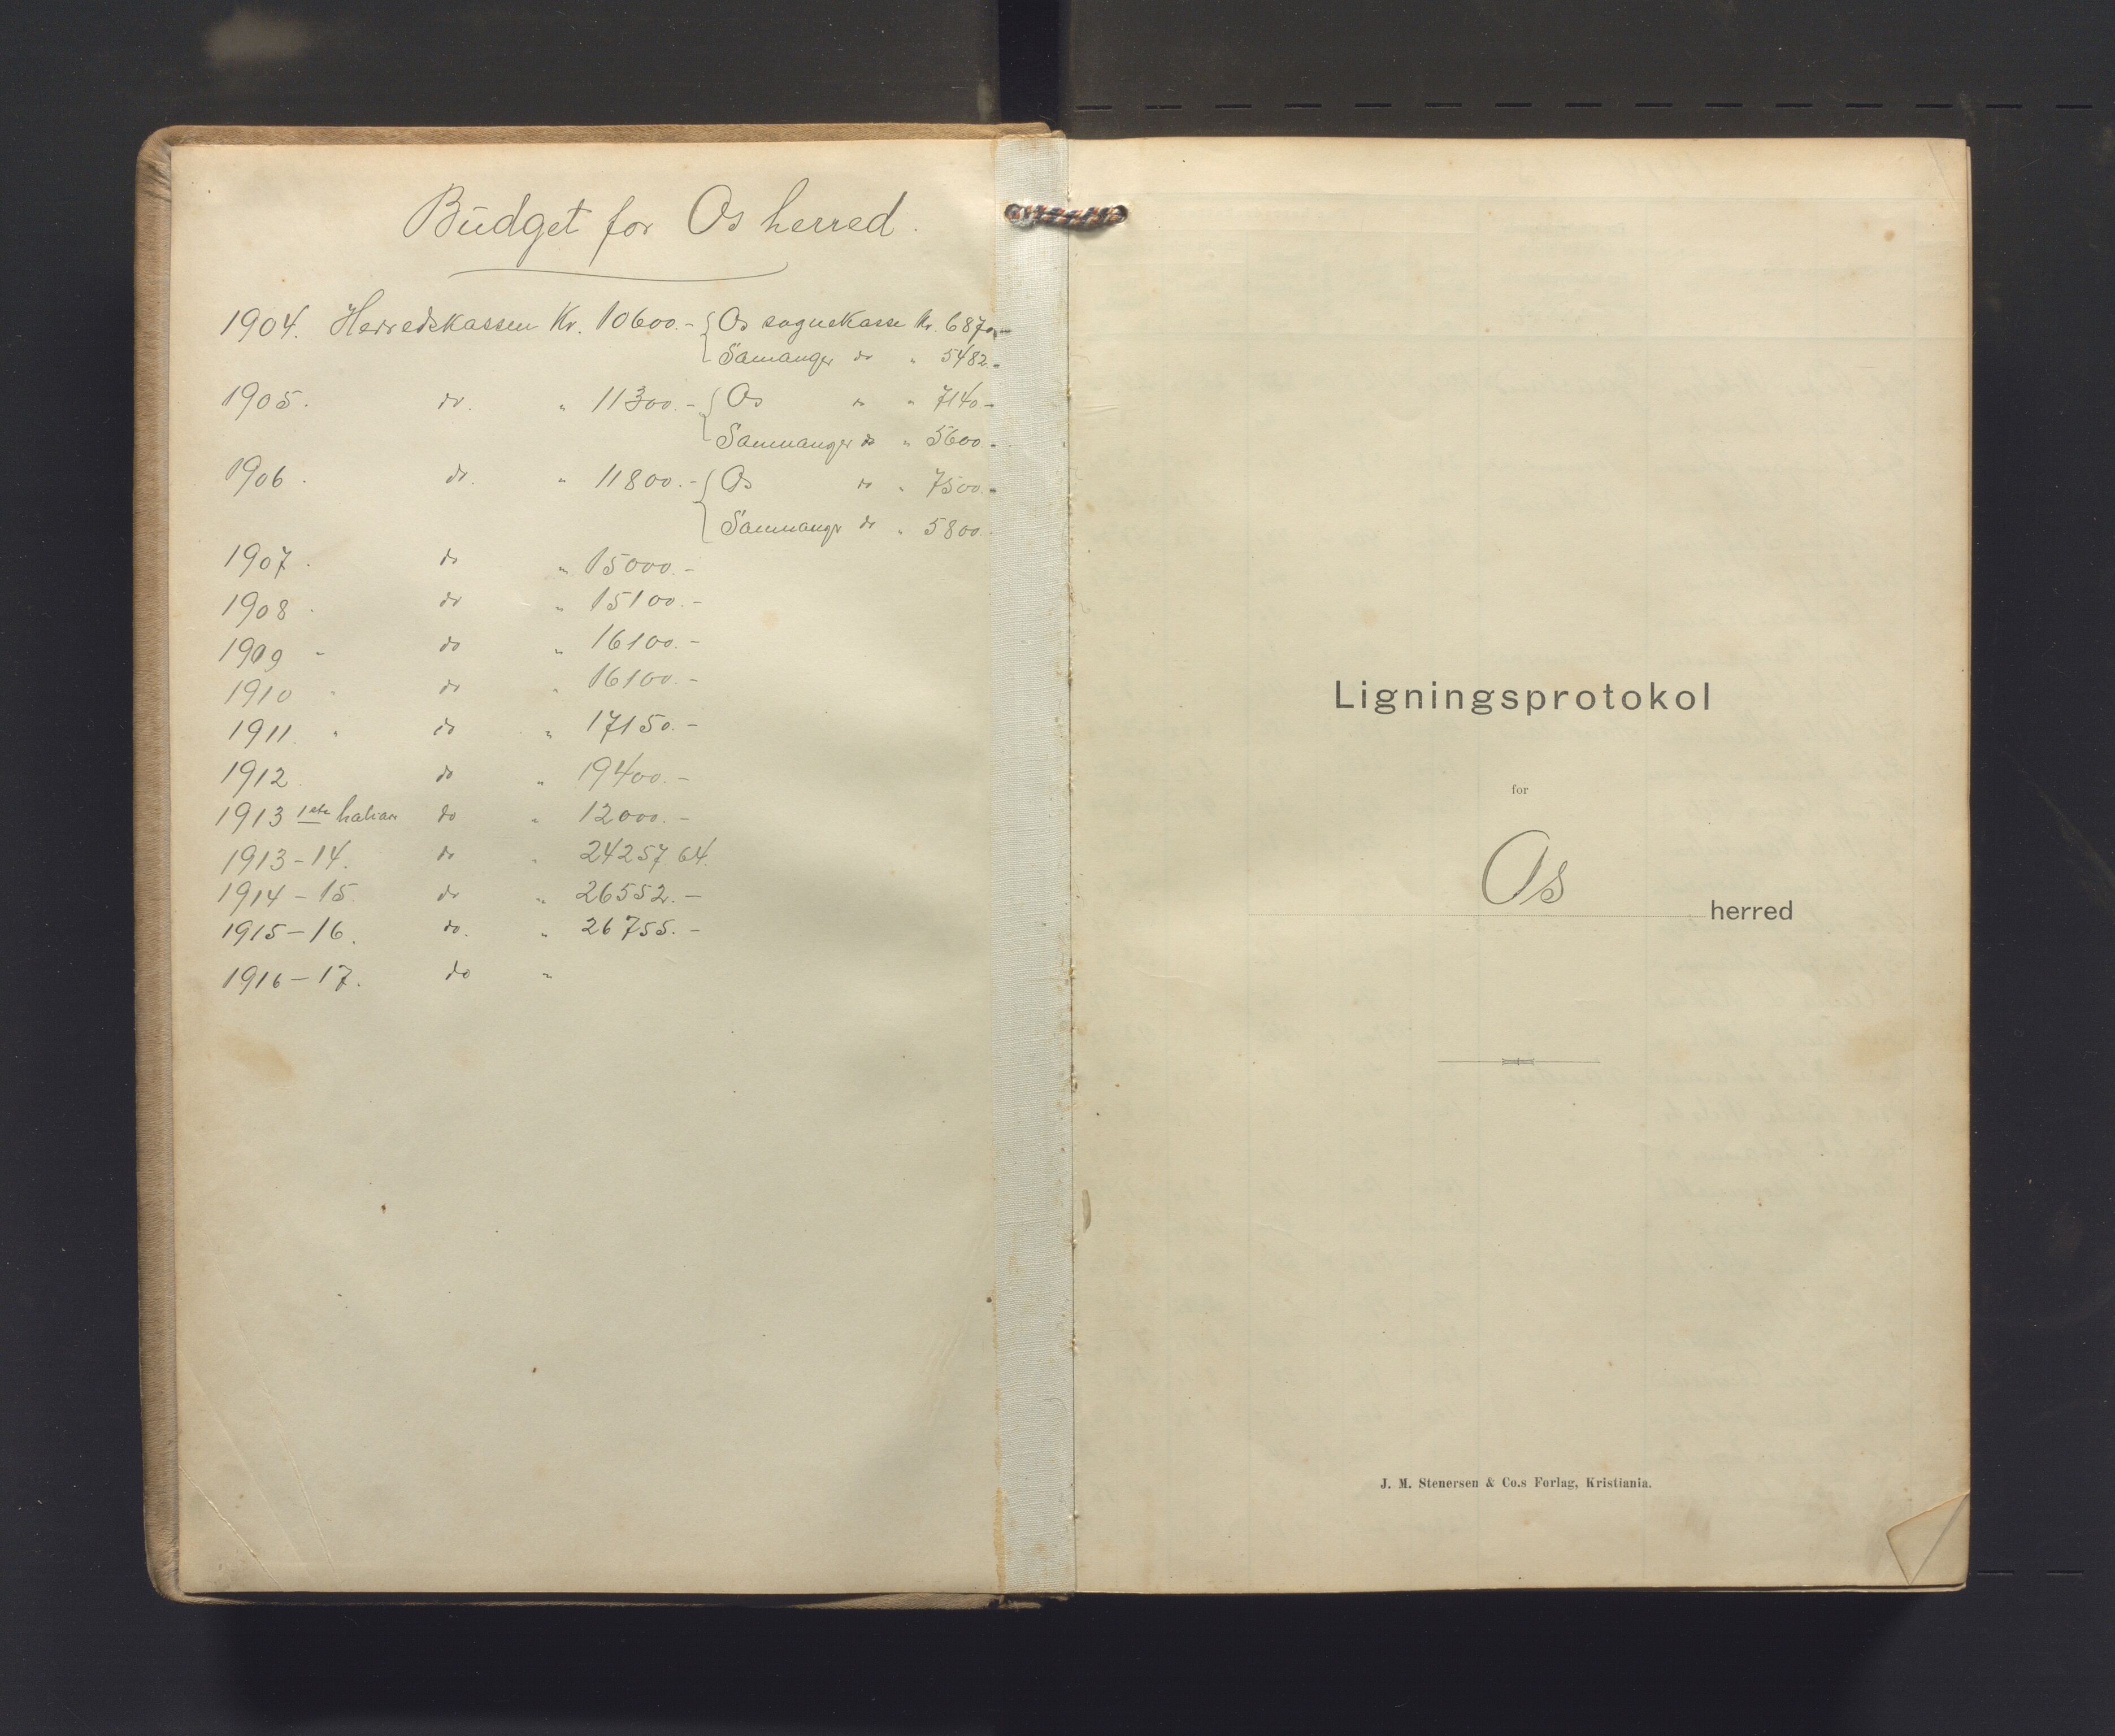 Budget for Os herred.
1904. Herredskassen Kr. 10600.- { Os sognekasse Kr. 6870.-
Samanger do " 5482.-
1905. do. " 11300.- { Os do " 7140-
Samnanger do " 5600.-
1906. do. " 11800.- { Os do " 7500.-
Samnanger do " 5800.-
1907. do " 15000.-
1908. do " 15100.-
1909 - do " 16100.-
1910 " do " 16100.-
1911. " do " 17150.-
1912. do " 19400.-
1913 1ste halvaar do " 12000.-
1913-14. do " 24257 64.
1914-15 do " 26552.-
1915-16. do. " 26755.-
1916-17. do "
Ligningsprotokol
for
Os herred
J. M. Stenersen & Co.s Forlag, Kristiania.